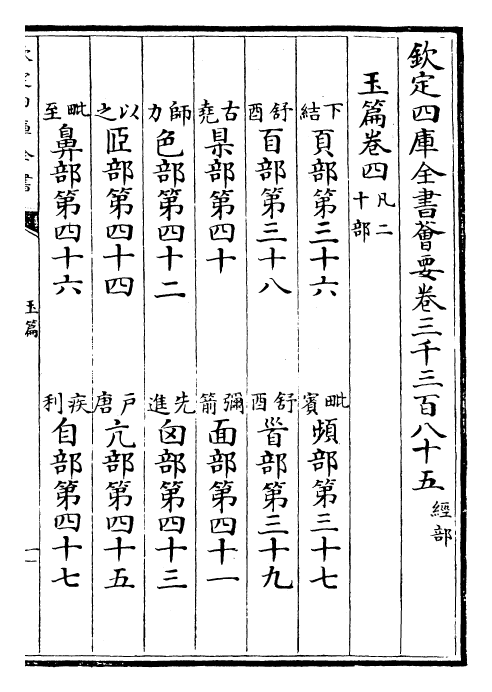 欽定四庫全書薈要卷三千三百八十五 經部
玉篇卷四 凡二十部
下結 頁部第三十六 毗賓 頻部第三十七
舒酉 百部第三十八 舒酉 𦣻部第三十九
古堯 㬎部第四十 彌箭 面部第四十一
師力 色部第四十二 先進 囟部第四十三
以之 𦣝部第四十四 戸唐 亢部第四十五
毗至 鼻部第四十六 疾利 自部第四十七
玉篇
一